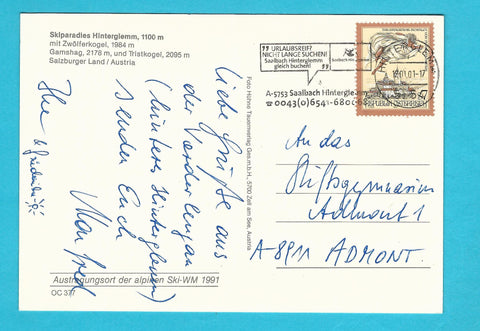 Skiparadies Hinterglemm, 1100 m
mit Zwölferkogel, 1984 m
Gamshag, 2178 m, und Tristkogel, 2095 m
Salzburger Land / Austria
Liebe Grüße aus
der
(hinterm Hinterglemm)
senden Euch
Manfred
Austragungsort der alpinen Ski-WM 1991
OC 377
Foto Hühne Tauernverlag Ges.m.b.H., 5700 Zell am See, Austria
URLAUBSREIF?
NICHT LANGE SUCHEN!
Saalbach Hinterglemm
gleich buchen!
A-5753 Saalbach Hinterglemm
☎ 0043(0)6541-680
REPUBLIK ÖSTERREICH
An das
Stiftsgymnasium
Admont 1
A 8911 ADMONT.